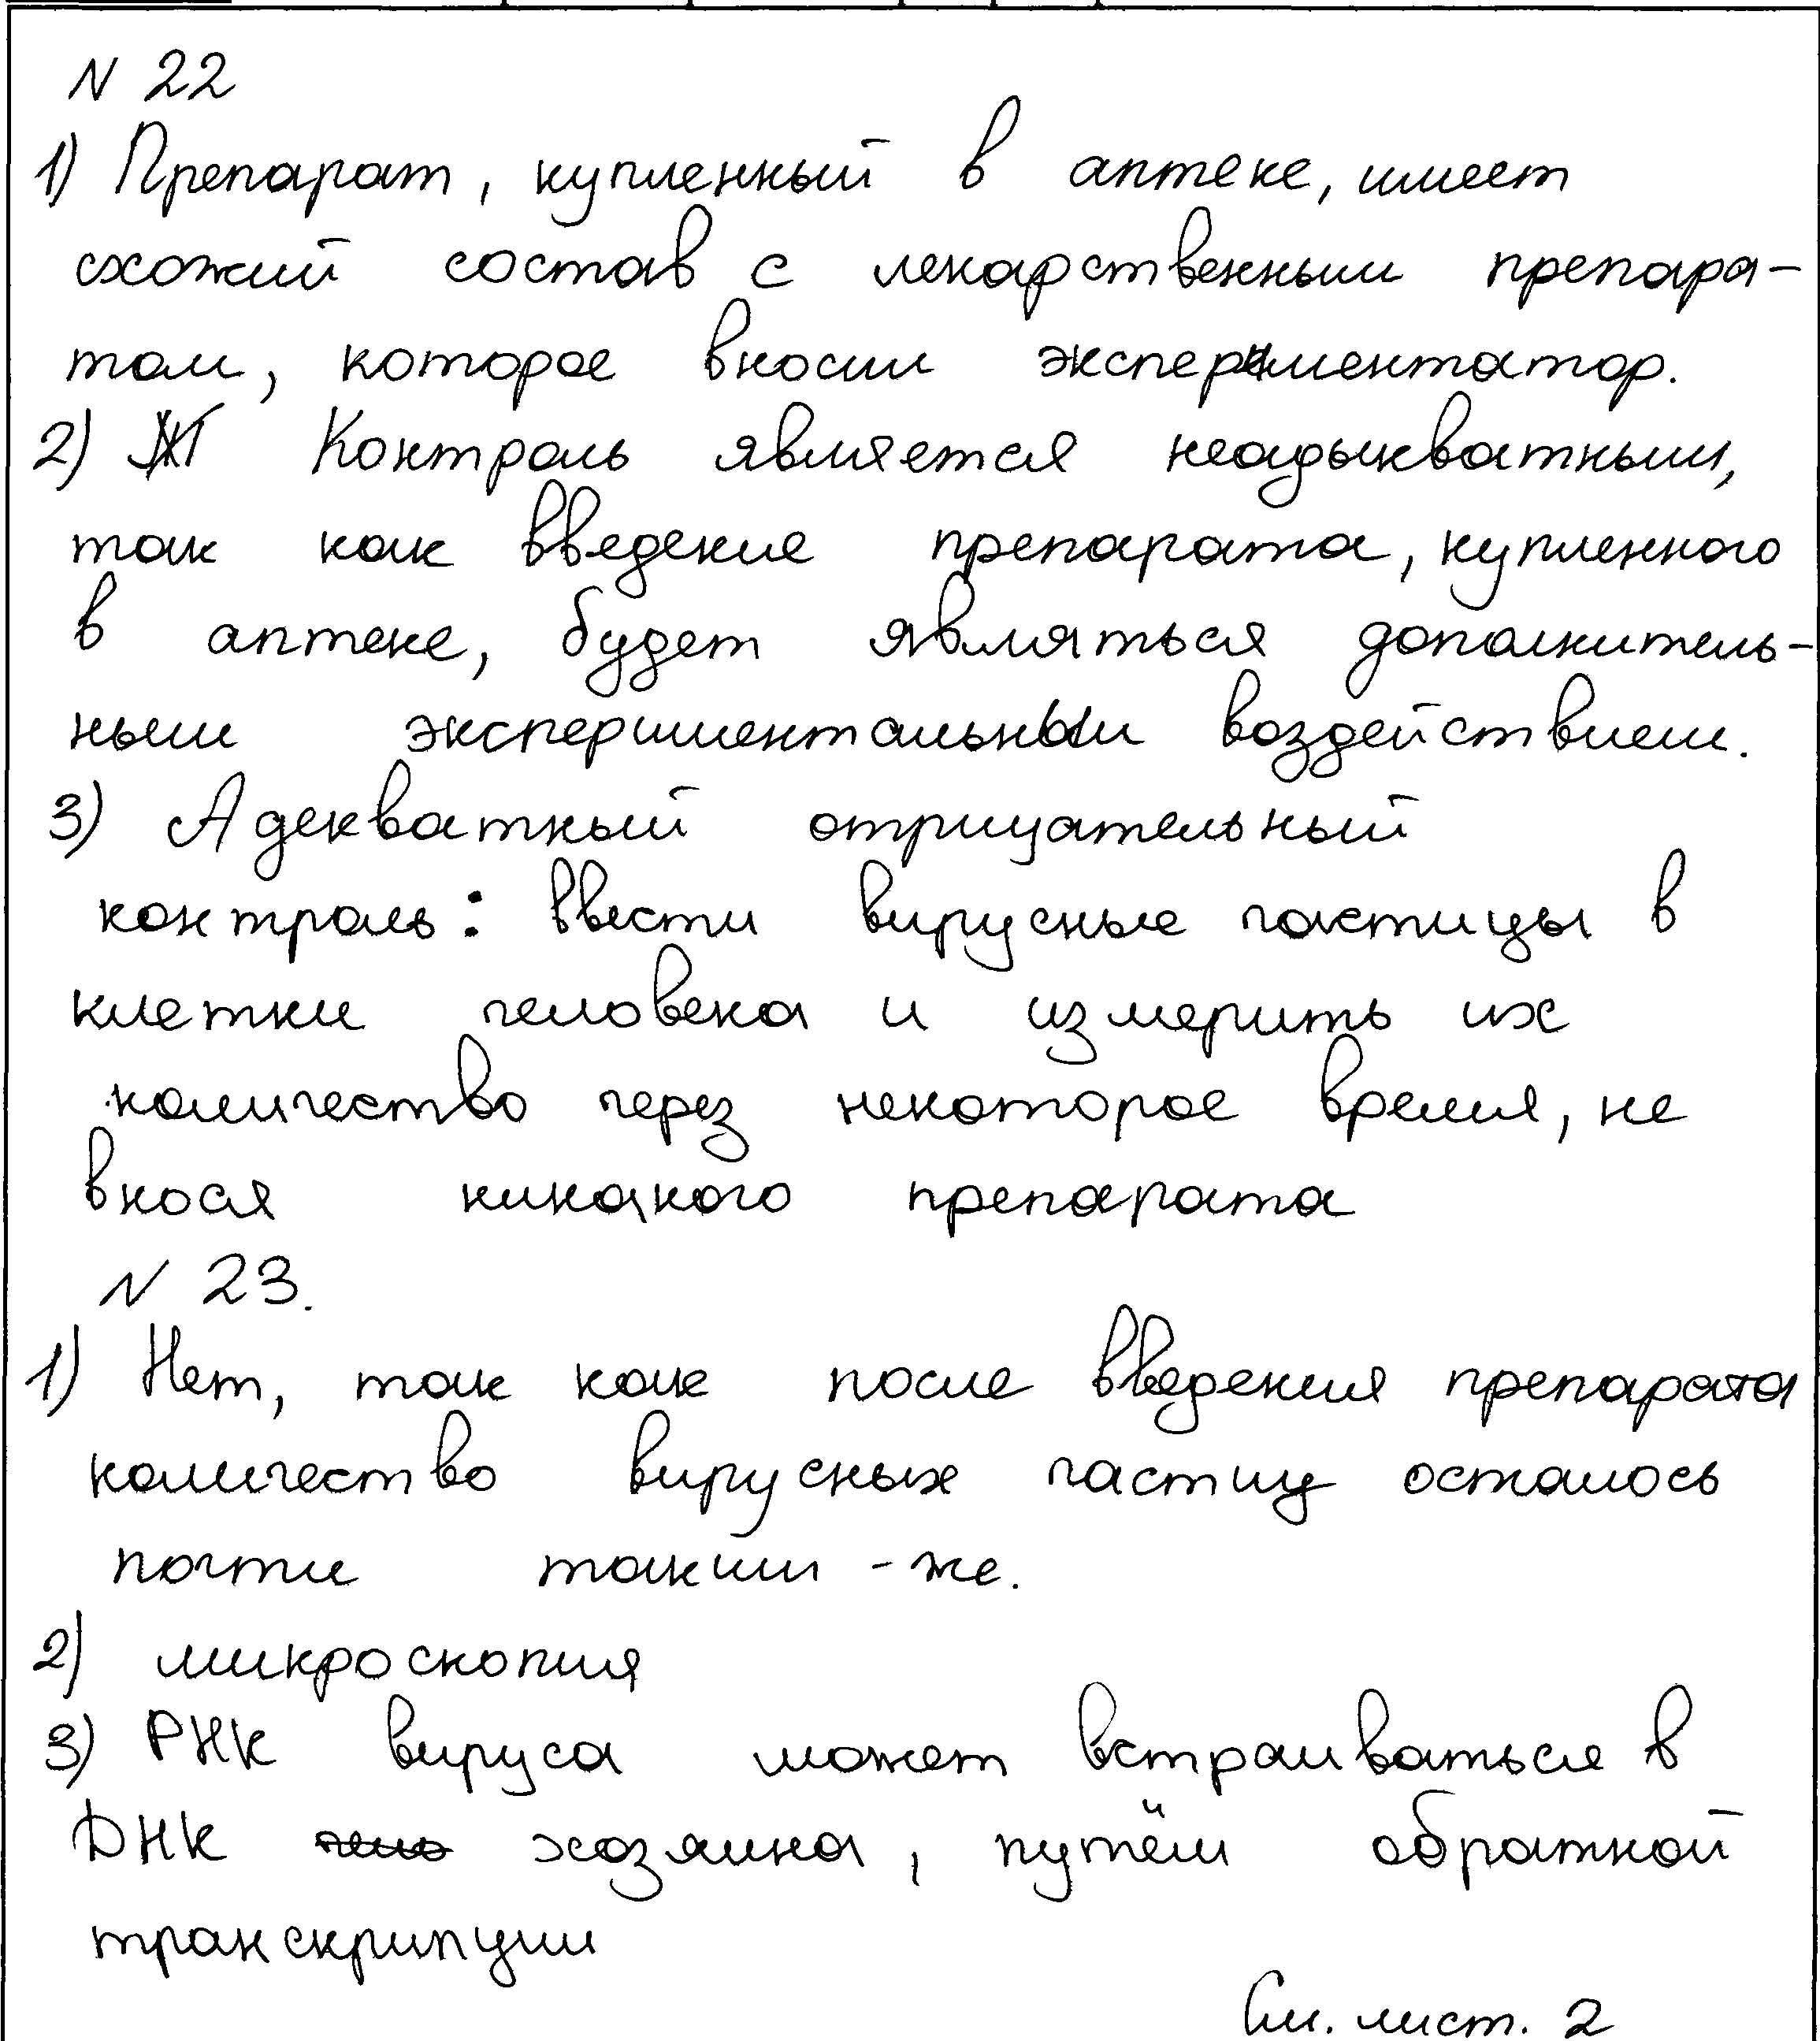 N 22
1) Препарат, купленный в аптеке, имеет
схожий состав с лекарственным препара-
том, которое вносил экспериментатор.
2) Контроль является неадыкватным,
так как введение препарата, купленного
в аптеке, будет являться дополнитель-
ным экспериментальным воздействием.
3) Адекватный отрицательный
контроль: ввести вирусные частицы в
клетки человека и измерить их
количество через некоторое время, не
внося никакого препарата
N 23.
1) Нет, так как после введения препарата
количество вирусных частиц осталось
почти таким-же.
2) микроскопия
3) РНК вируса может встраиваться в
ДНК хозяина, путём обратной
транскрипции
См. лист. 2